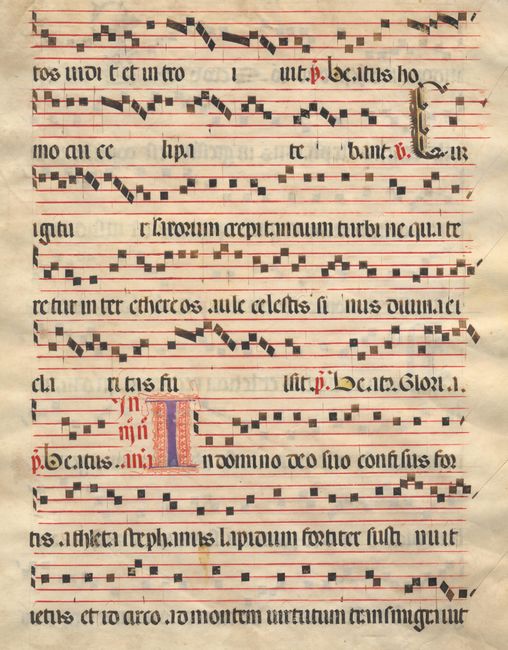 tos uidi t et in tro i uit. ℣. beatus ho
mo cui ce li pa te bant. ℣. Cu
igitu r saxorum crepitancium turbine qua te
retur in ter ethereos aule celestis si nus diuina ei
cla ri tas fu lsit. beatus. Gloria.
beatus. In
Indomino deo suo confisus for
tis athleta stephanus lapidum fortiter susti nuit
ictus et id circo ad montem uirtutum transmigrauit